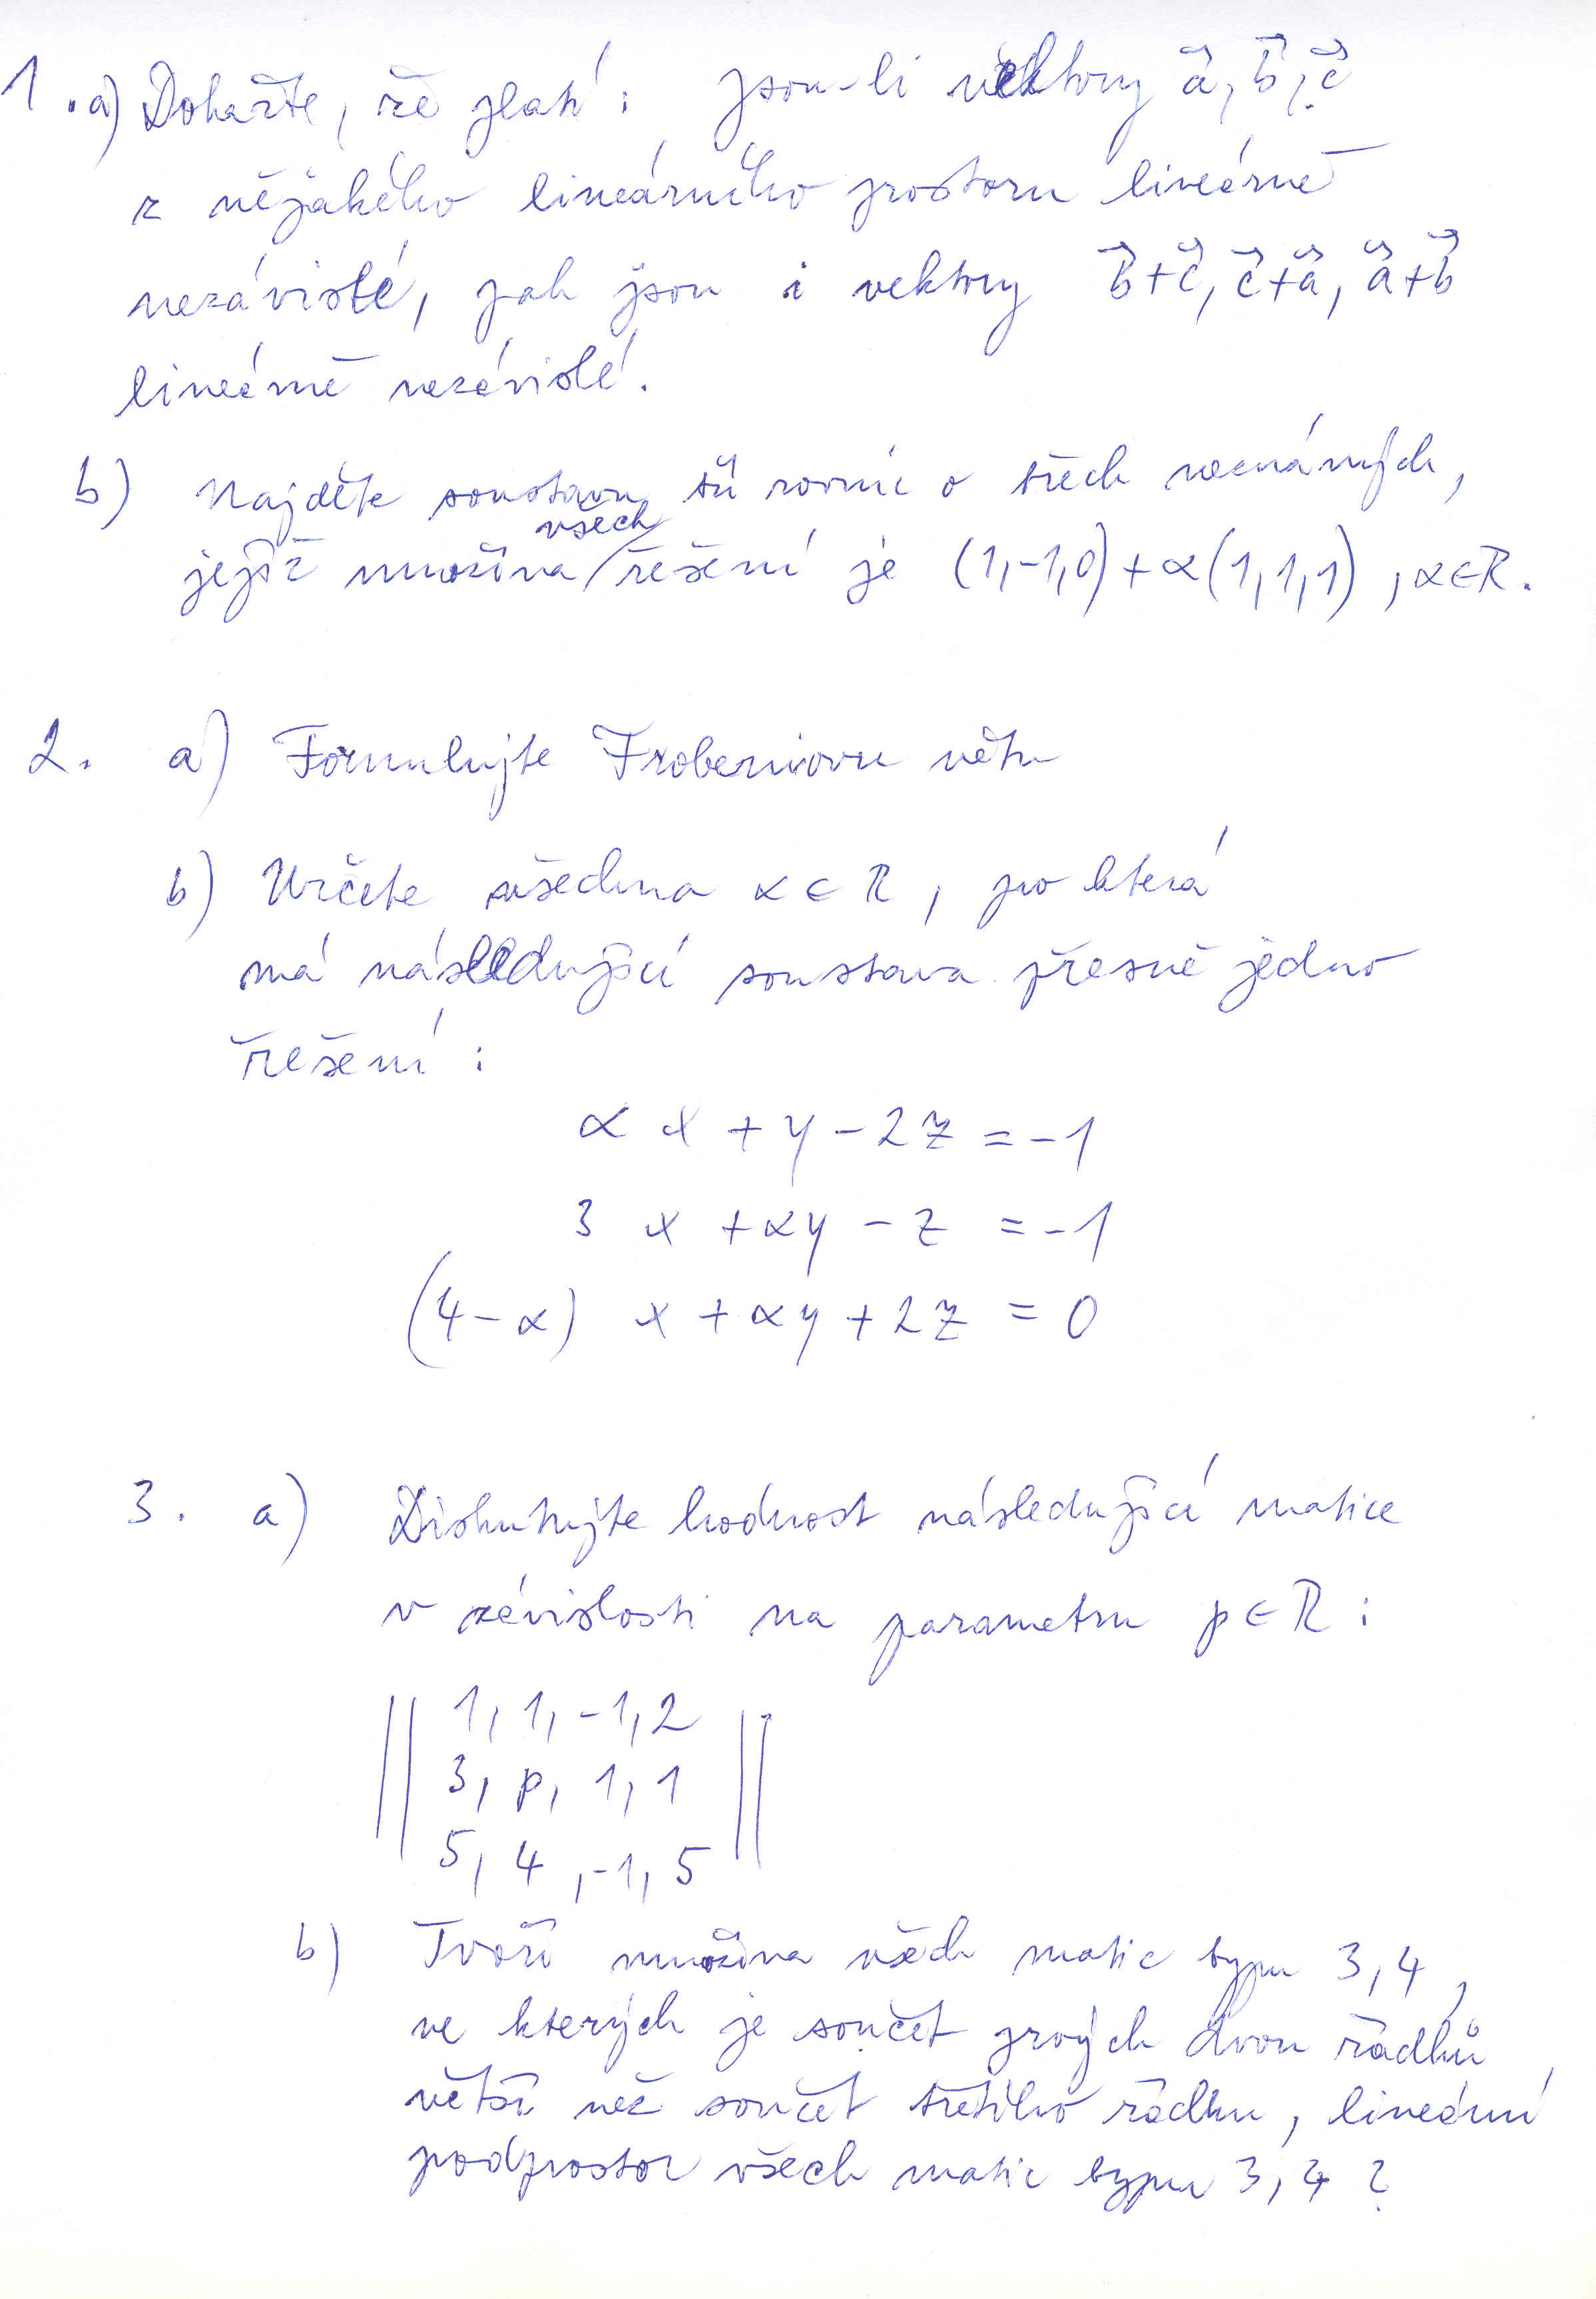 1. a) Dokažte, že platí: Jsou-li vektory a⃗, b⃗, c⃗
z nějakého lineárního prostoru lineárně
nezávislé, pak jsou i vektory b⃗+c⃗, c⃗+a⃗, a⃗+b⃗
lineárně nezávislé.
b) Najděte soustavu tří rovnic o třech neznámých,
jejíž množina všech řešení je (1,-1,0)+α(1,1,1), α∈R.
2. a) Formulujte Frobeniovu větu
b) Určete všechna α∈R, pro která
má následující soustava přesně jedno
řešení:
α x + y - 2z = -1
3 x + αy - z = -1
(4-α) x + αy + 2z = 0
3. a) Diskutujte hodnost následující matice
v závislosti na parametru p∈R:
|| 1, 1, -1, 2 ||
3, p, 1, 1
5, 4, -1, 5
b) Tvoří množina všech matic typu 3,4,
ve kterých je součet prvých dvou řádků
větší než součet třetího řádku, lineární
podprostor všech matic typu 3,4?